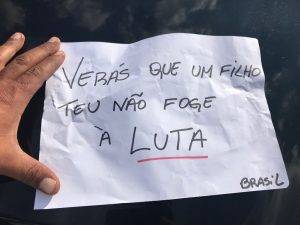 VERÁS QUE UM FILHO
TEU NÃO FOGE
À LUTA
BRASIL